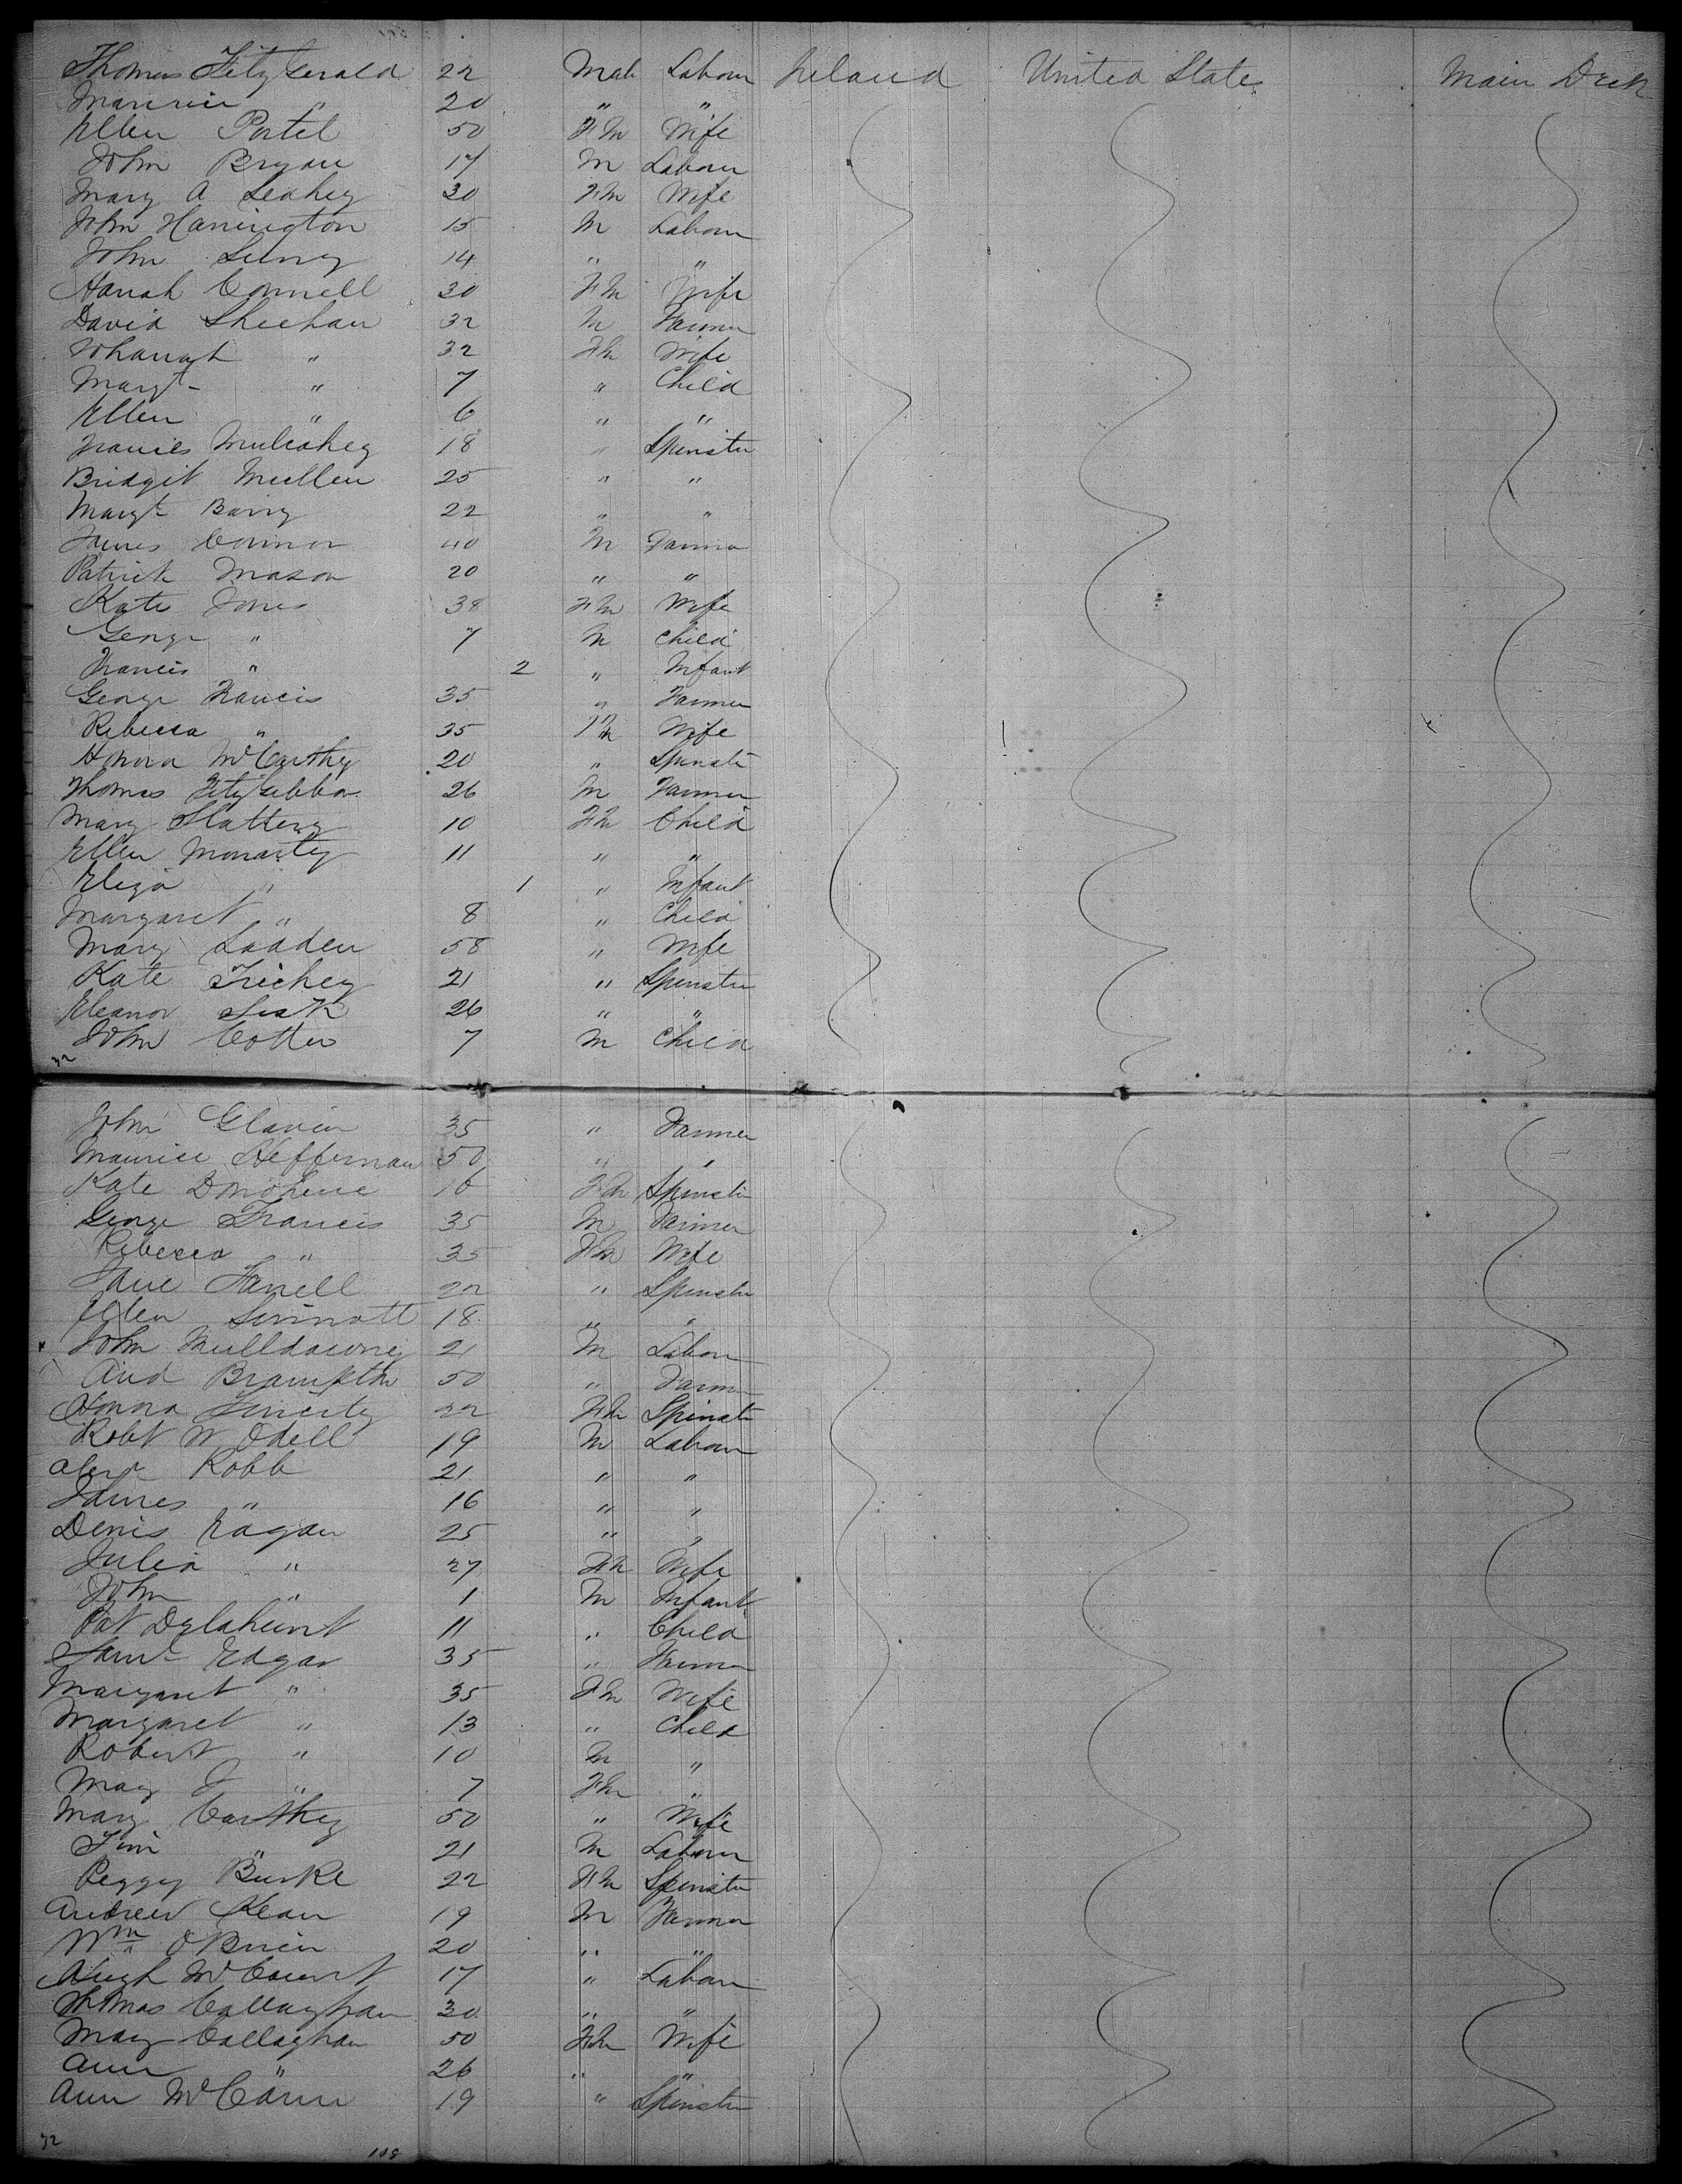 Thomas Fitzgerald 22 Male Labour Ireland United States Main Deck
Maurice " 20 " "
Ellen Portel 50 Fm Wife
John Bryan 17 M Labour
Mary A Leahey 30 Fm Wife
John Harrington 15 M Labour
John 14 " "
Hanah Connell 30 Fm Wife
David Sheehan 32 M Farmer
Johanagh " 32 Fm Wife
Margt " 7 " Child
Ellen " 6 " "
Frances Mulcahey 18 " Spinster
Bridgit Mullen 25 " "
Margt Barry 22 " "
James Connor 40 M Farmer
Patrick Mason 20 " "
Kate Jones 38 Fm Wife
George " 7 M Child
Francis " 2 " Infant
George Francis 35 " Farmer
Rebecca " 35 Fm Wife
Honora McCarthy 20 " Spinster
Thomas Fitzgibbon 26 M Farmer
Mary Slattery 10 Fm Child
Ellen Moriarty 11 " "
Eliza " 1 " Infant
Margaret " 8 " Child
Mary Ladden 58 " Wife
Kate 21 " Spinster
Eleanor Sisk 26 " "
John Cotter 7 M Child
32
John Glavin 35 " Farmer
Maurice Heffernan 50 " "
Kate Donohue 16 Fm Spinster
George Francis 35 M Farmer
Rebecca " 35 Fm Wife
Jane Farrell 22 " Spinster
Ellen Sinnott 18 " "
John Mulldowney 21 M Labour
And Brampton 50 " Farmer
Honora 22 Fm Spinster
Robt W Odell 19 M Labour
Alexr Robb 21 " "
James " 16 " "
Denis Eagan 25 " "
Julia " 27 Fm Wife
John " 1 M Infant
Pat Delahunt 11 " Child
Saml Edgar 35 " Farmer
Margaret " 35 Fm Wife
Margaret " 13 " Child
Robert " 10 M "
Mary J " 7 Fm "
Mary Carthy 50 " Wife
Tim " 21 M Labour
Peggy Burke 22 Fm Spinster
Andrew Kean 19 M Farmer
Wm OBrien 20 " "
Hugh McCourt 17 " Labour
Thomas Callaghan 30 " "
Mary Callaghan 50 Fm Wife
Ann " 26 " "
Ann McCann 19 " Spinster
32 108